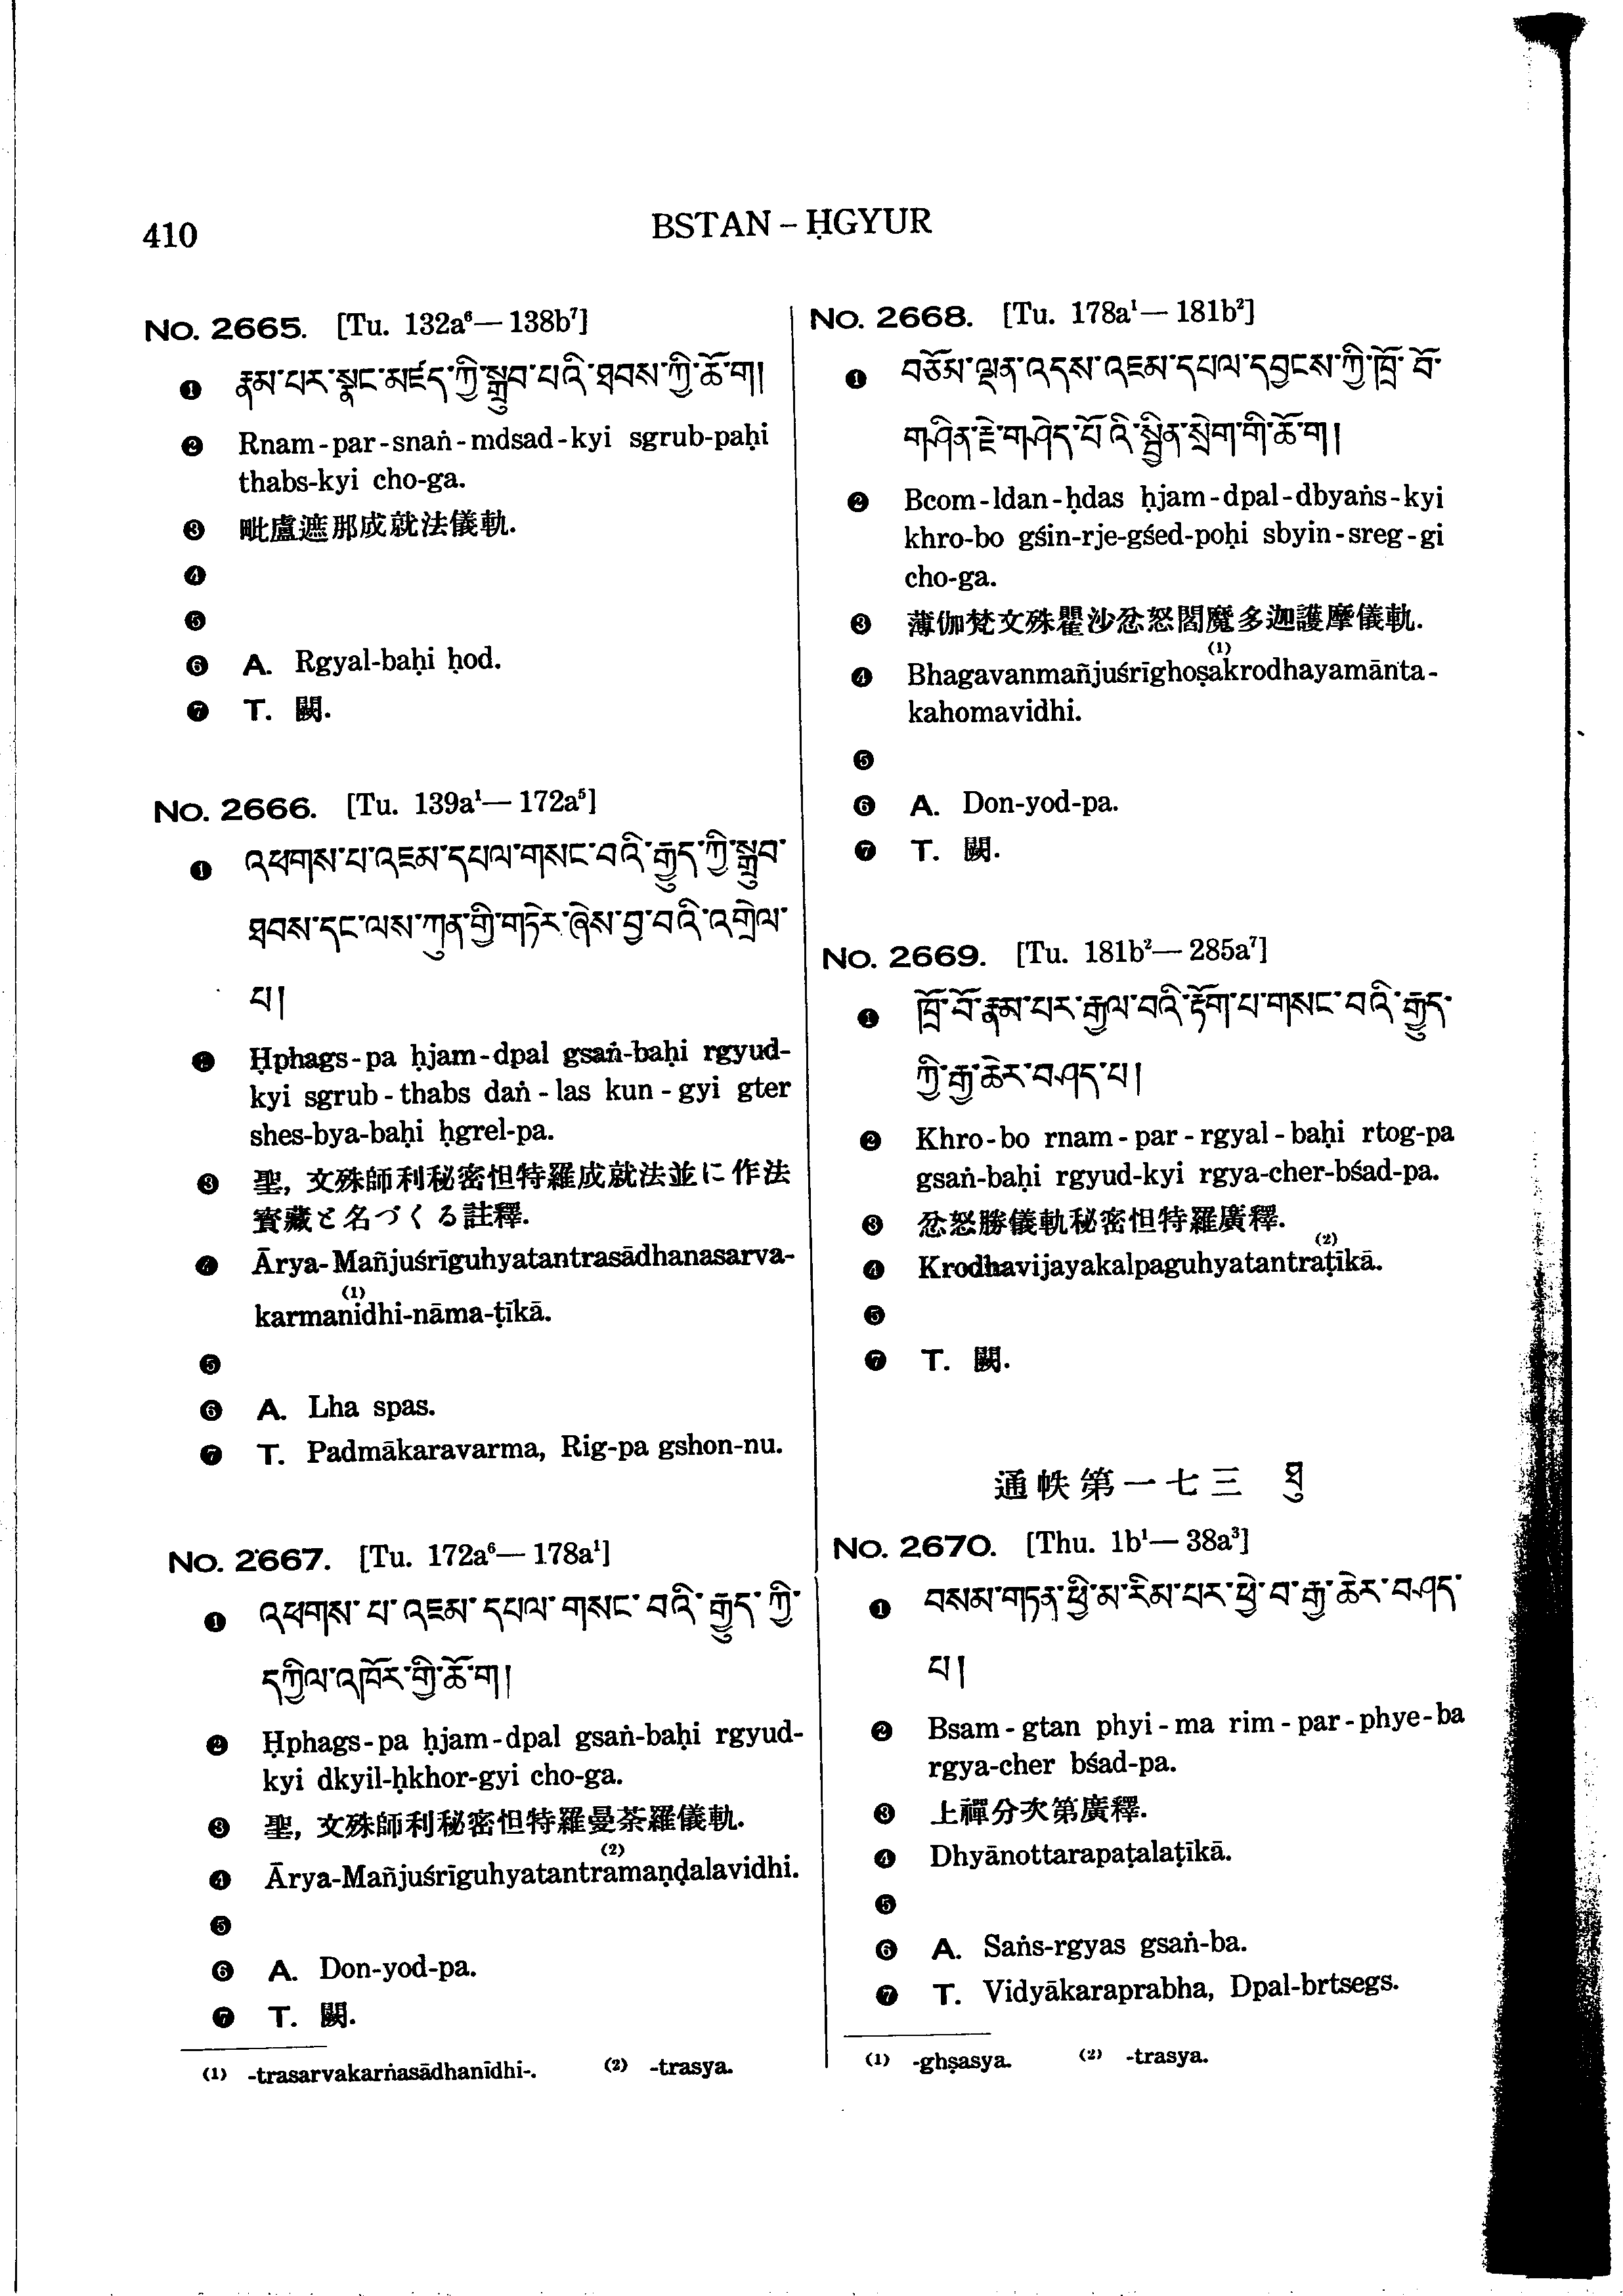 410
BSTAN – ḤGYUR
No. 2665. [Tu. 132a⁶— 138b⁷]
❶ རྣམ་པར་སྣང་མཛད་ཀྱི་སྒྲུབ་པའི་ཐབས་ཀྱི་ཆོ་ག།
❷ Rnam-par-snaṅ-mdsad-kyi sgrub-paḥi
thabs-kyi cho-ga.
❸ 毗盧遮那成就法儀軌.
❹
❺
❻ A. Rgyal-baḥi ḥod.
❼ T. 闕.
No. 2666. [Tu. 139a¹— 172a⁵]
❶ འཕགས་པ་འཇམ་དཔལ་གསང་བའི་རྒྱུད་ཀྱི་སྒྲུབ་
ཐབས་དང་ལས་ཀུན་གྱི་གཏེར་ཞེས་བྱ་བའི་འགྲེལ་
པ།
❷ Ḥphags-pa ḥjam-dpal gsaṅ-baḥi rgyud-
kyi sgrub-thabs daṅ-las kun-gyi gter
shes-bya-baḥi ḥgrel-pa.
❸ 聖, 文殊師利秘密怛特羅成就法並に作法
寳藏と名づくる註釋.
❹ Ārya-Mañjuśrīguhyatantrasādhanasarva-
karmanidhi-nāma-ṭīkā.(1)
❺
❻ A. Lha spas.
❼ T. Padmākaravarma, Rig-pa gshon-nu.
No. 2667. [Tu. 172a⁶— 178a¹]
❶ འཕགས་པ་འཇམ་དཔལ་གསང་བའི་རྒྱུད་ཀྱི་
དཀྱིལ་འཁོར་གྱི་ཆོ་ག།
❷ Ḥphags-pa ḥjam-dpal gsaṅ-baḥi rgyud-
kyi dkyil-ḥkhor-gyi cho-ga.
❸ 聖, 文殊師利秘密怛特羅曼荼羅儀軌.
❹ Ārya-Mañjuśrīguhyatantramaṇḍalavidhi.(2)
❺
❻ A. Don-yod-pa.
❼ T. 闕.
(1) -trasarvakarṅasādhanīdhi-. (2) -trasya.
No. 2668. [Tu. 178a¹— 181b²]
❶ བཅོམ་ལྡན་འདས་འཇམ་དཔལ་དབྱངས་ཀྱི་ཁྲོ་བོ་
གཤིན་རྗེ་གཤེད་པོའི་སྦྱིན་སྲེག་གི་ཆོ་ག།
❷ Bcom-ldan-ḥdas ḥjam-dpal-dbyaṅs-kyi
khro-bo gśin-rje-gśed-poḥi sbyin-sreg-gi
cho-ga.
❸ 薄伽梵文殊瞿沙忿怒閻魔多迦護摩儀軌.
❹ Bhagavanmañjuśrīghoṣakrodhayamānta-(1)
kahomavidhi.
❺
❻ A. Don-yod-pa.
❼ T. 闕.
No. 2669. [Tu. 181b²— 285a⁷]
❶ ཁྲོ་བོ་རྣམ་པར་རྒྱལ་བའི་རྟོག་པ་གསང་བའི་རྒྱུད་
ཀྱི་རྒྱ་ཆེར་བཤད་པ།
❷ Khro-bo rnam-par-rgyal-baḥi rtog-pa
gsaṅ-baḥi rgyud-kyi rgya-cher-bśad-pa.
❸ 忿怒勝儀軌秘密怛特羅廣釋.
❹ Krodhavijayakalpaguhyatantraṭīkā.(2)
❺
❼ T. 闕.
通帙第一七三 ཐུ
No. 2670. [Thu. 1b¹— 38a³]
❶ བསམ་གཏན་ཕྱི་མ་རིམ་པར་ཕྱེ་བ་རྒྱ་ཆེར་བཤད་
པ།
❷ Bsam-gtan phyi-ma rim-par-phye-ba
rgya-cher bśad-pa.
❸ 上禪分次第廣釋.
❹ Dhyānottarapaṭalaṭīkā.
❺
❻ A. Saṅs-rgyas gsaṅ-ba.
❼ T. Vidyākaraprabha, Dpal-brtsegs.
(1) -ghṣasya. (2) -trasya.